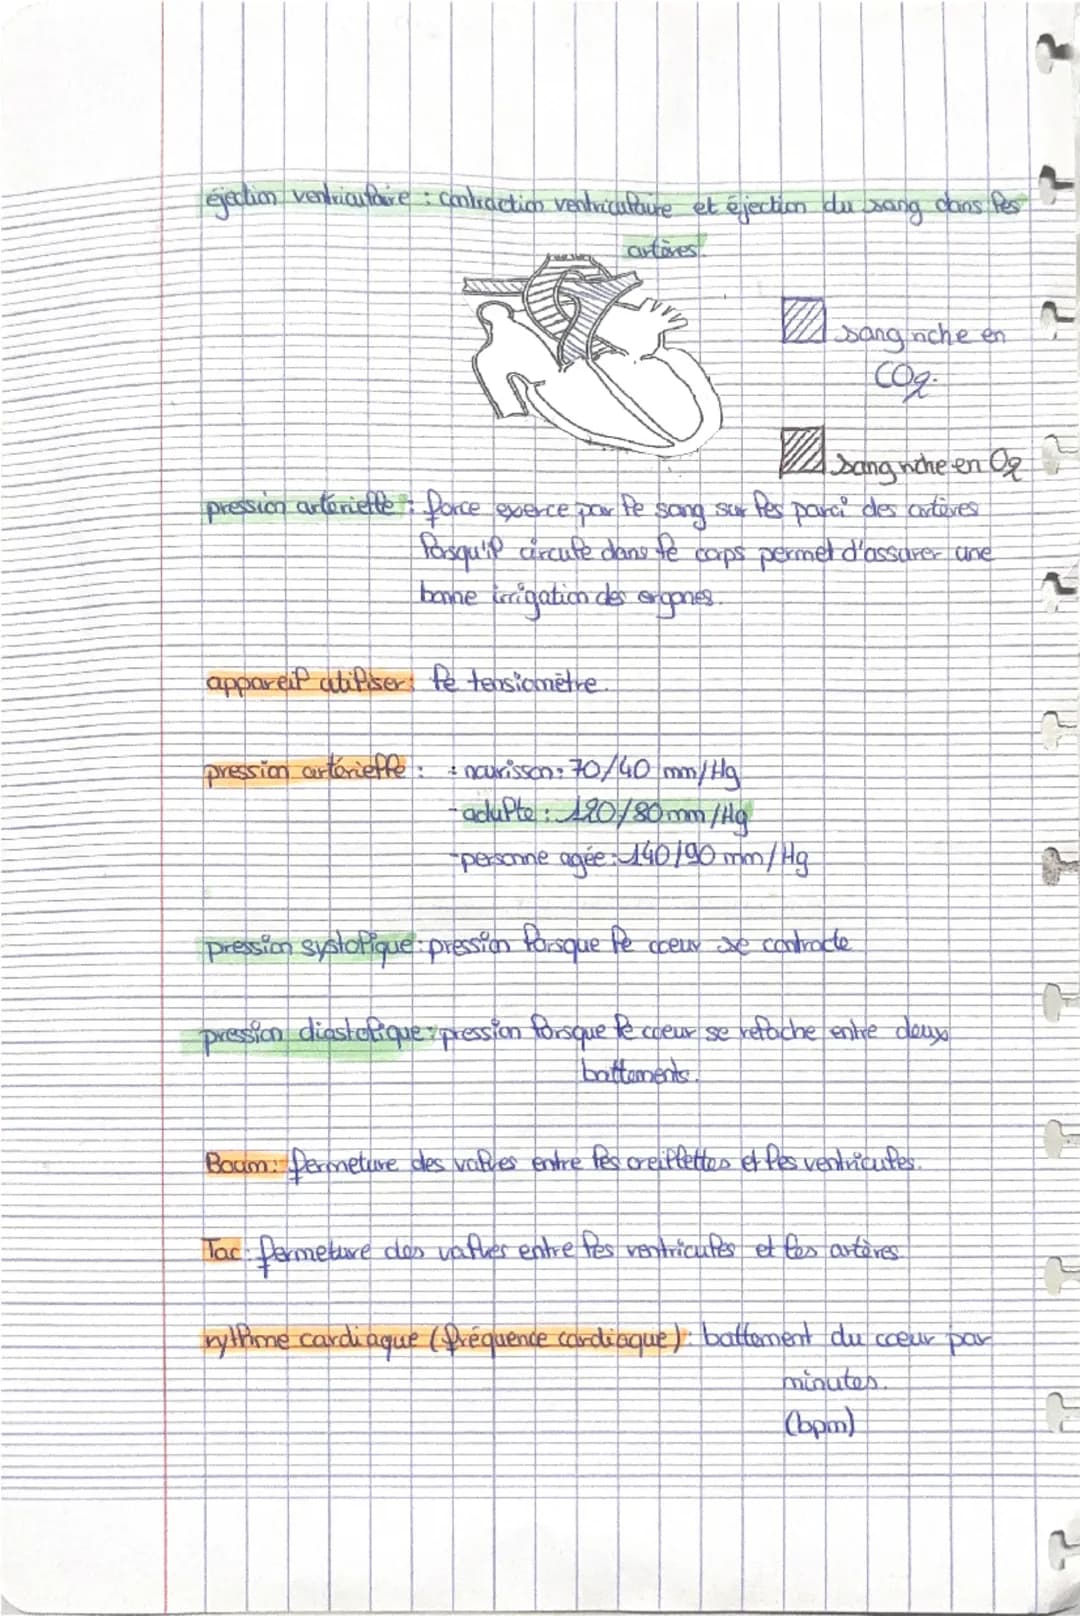 éjection ventriculaire : contraction ventriculaire et éjection du sang dans les
artères.
sang riche en
CO2.
sang riche en O2
pression artérielle : force exerce par le sang sur les parci des artères
lorsqu'il circule dans le corps permet d'assurer une
bonne irrigation des organes.
appareil utiliser : le tensiomètre.
pression artérielle : - nourisson : 70/40 mm/Hg
- adulte : 120/80 mm/Hg
- personne agée : 140/90 mm/Hg
pression systolique : pression lorsque le coeur se contracte
pression diastolique : pression lorsque le coeur se relache entre deux
battements.
Boum : fermeture des valves entre les oreillettes et les ventricules.
Tac : fermeture des valves entre les ventricules et les artères
rythme cardiaque (fréquence cardiaque) : battement du coeur par
minutes.
(bpm)